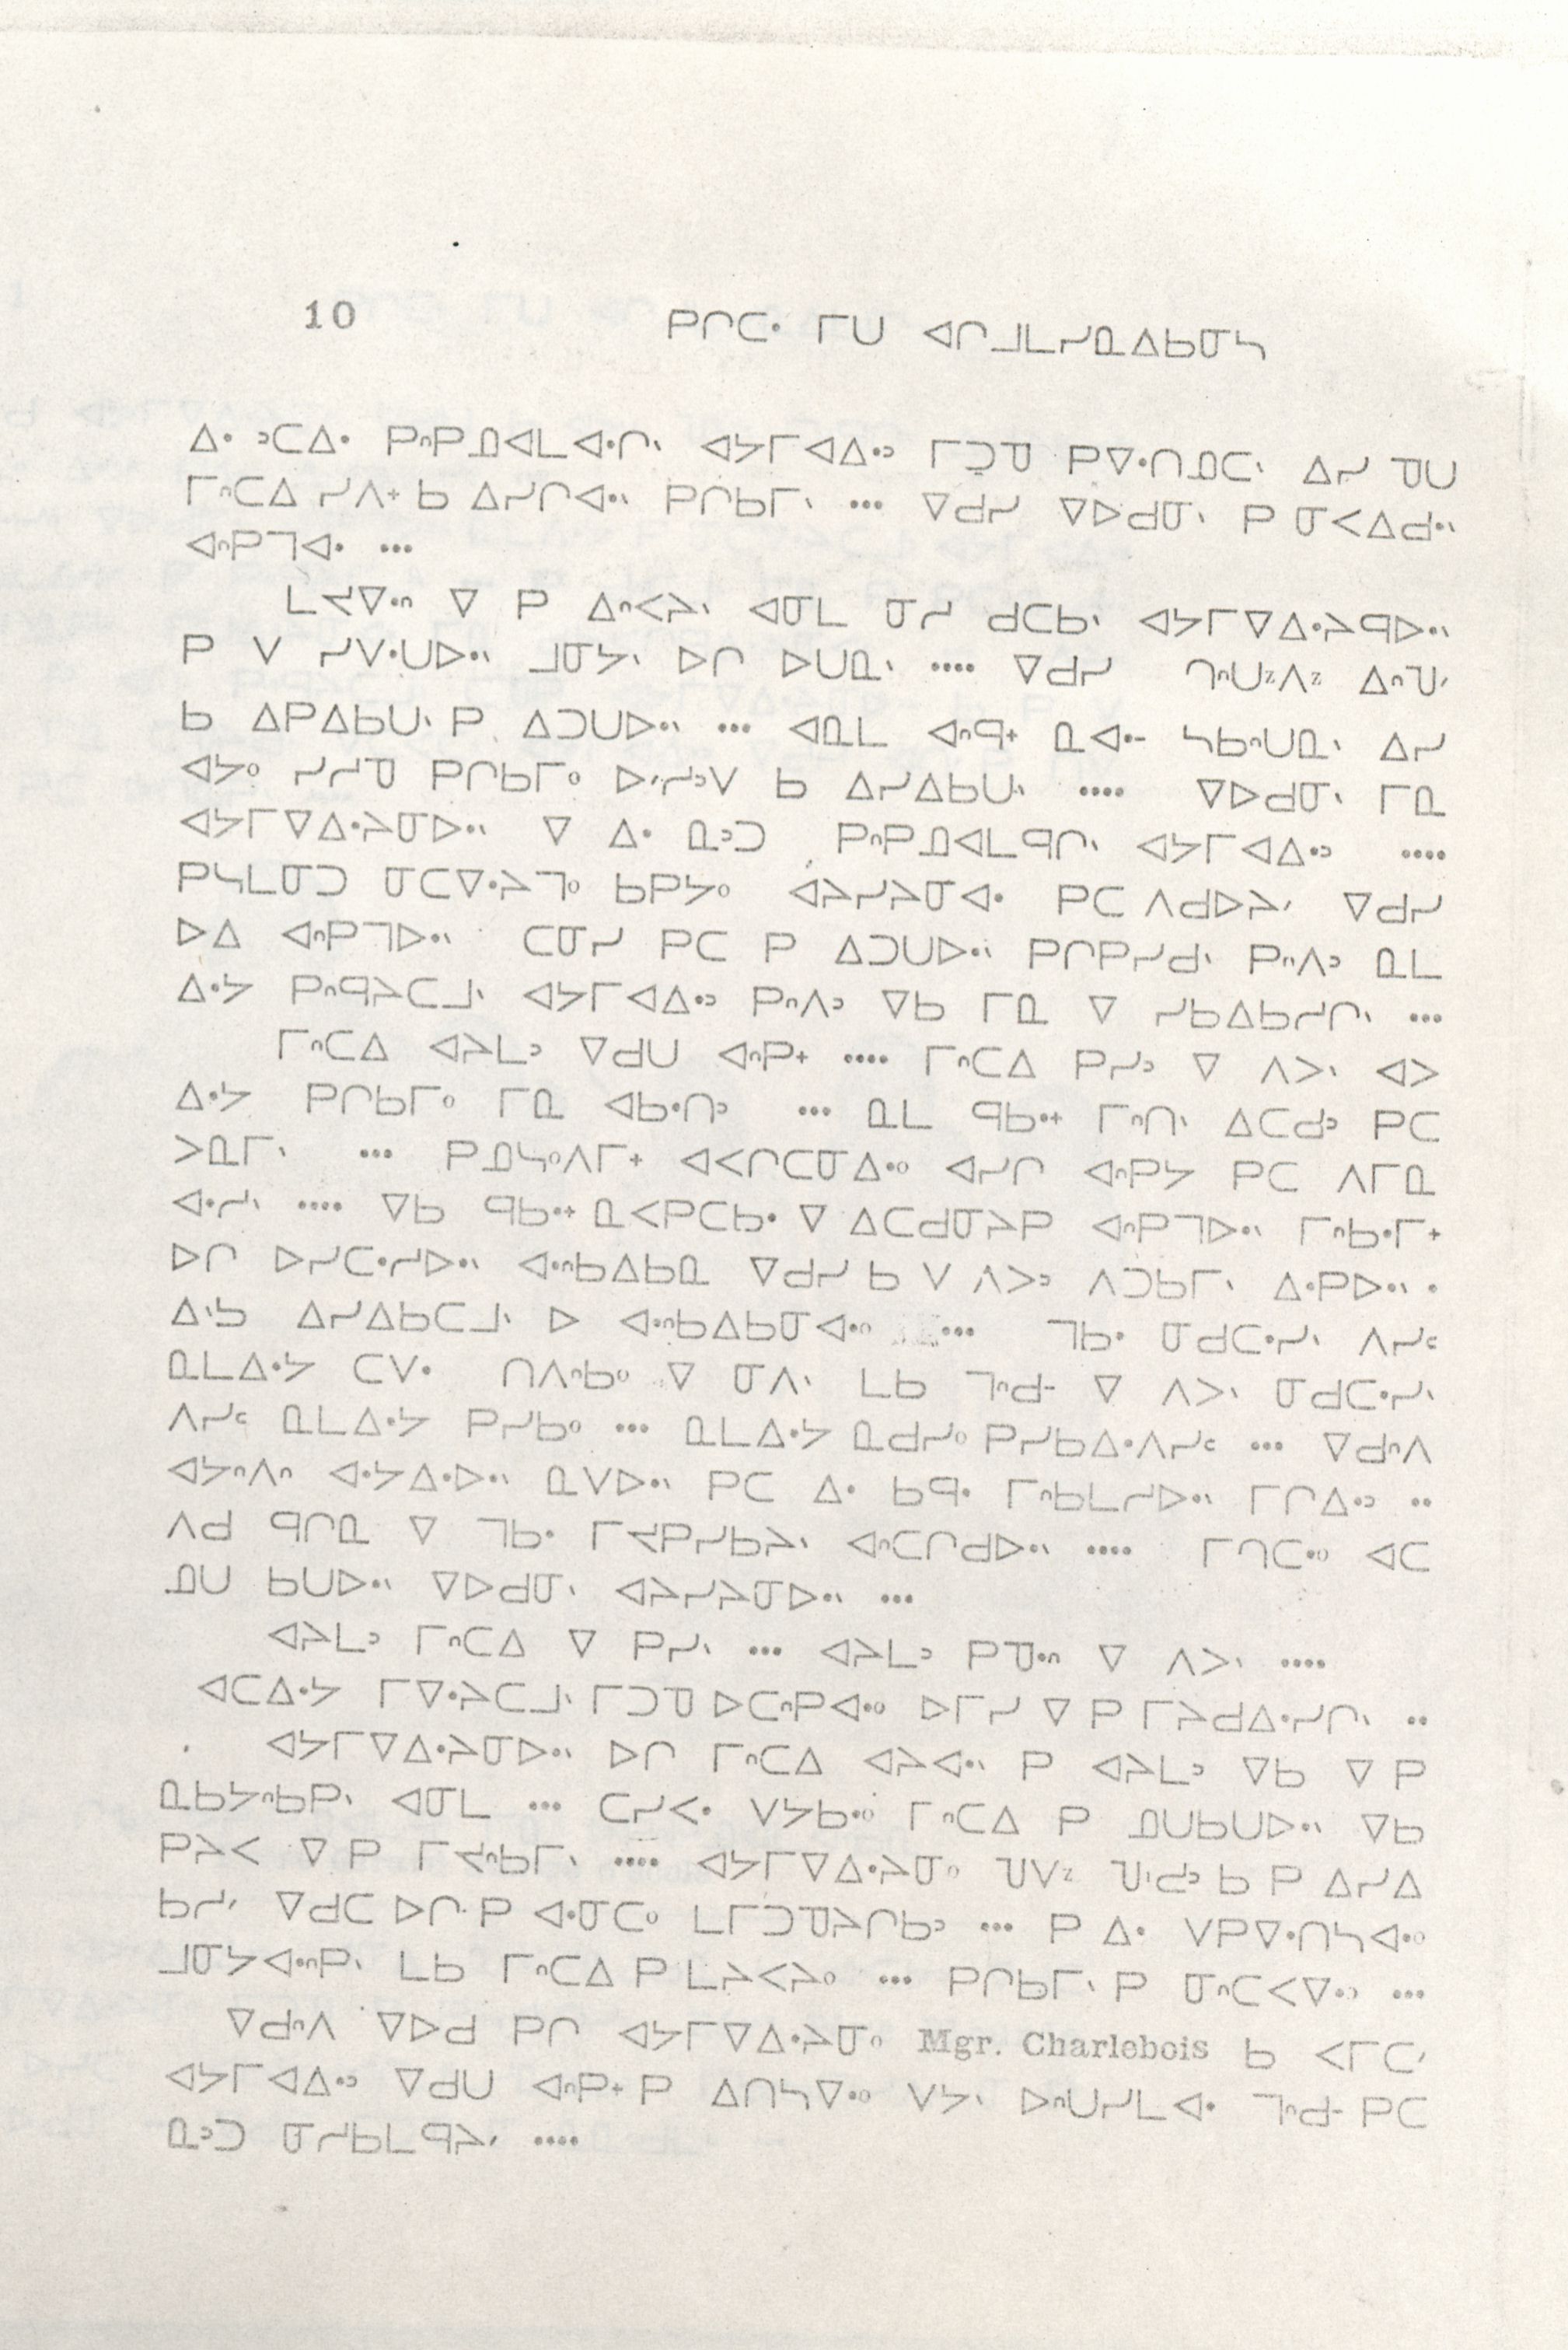 10 ᑭᒋᑕᐧ ᒥᑌ ᐊᒋᒧᒪᓯᓇᐃᑲᓂᓴ
ᐃᐧ ᐣᑕᐃᐧ ᑭᐢᑭᓄᐊᒪᐊᐧᒋᐠ ᐊᔭᒥᐊᐃᐧᐣ ᒥᑐᓀ ᑭᐁᐧᑎᓄᑕᐠ ᐃᓯ ᑯᑌ
ᒥᐢᑕᐃ ᓯᐱᐩ ᑲ ᐃᓯᒋᐊᐧᐠ ᑭᒋᑲᒥᐠ ... ᐁᑯᓯ ᐁᐅᑯᓂᐠ ᑭ ᓂᐸᐃᑯᐧᐠ
ᐊᐢᑭᒣᐊᐧ ...
ᒪᔦᐁᐧᐢ ᐁ ᑭ ᐃᐢᐸᔨᐠ ᐊᓂᒪ ᓂᓯ ᑯᑕᑲᐠ ᐊᔭᒥᐁᐃᐧᔨᑫᐅᐧᐠ
ᑭ ᐯ ᓯᐯᐧᑌᐅᐧᐠ ᒧᓂᔭᐠ ᐅᒋ ᐅᑌᓇᐠ .... ᐁᑯᓯ
ᑲ ᐃᑭᐃᑲᑌᐠ ᑭ ᐃᑐᑌᐅᐧᐠ ... ᐊᓇᒪ ᐊᐢᑫᐩ ᓇᐊᐧᐨ ᓴᑲᐢᑌᓇᐠ ᐃᓯ
ᐊᔭᐤ ᓯᓯᓀ ᑭᒋᑲᒥᐤ ᑲ ᐃᓯᐃᑲᑌᐠ .... ᐁᐅᑯᓂᐠ ᒥᓇ
ᐊᔭᒥᐁᐃᐧᔨᓂᐅᐧᐠ ᐁ ᐃᐧ ᓇᐣᑐ ᑭᐢᑭᓄᐊᒪᑫᒋᐠ ᐊᔭᒥᐊᐃᐧᐣ ....
ᑭᓴᒪᓂᑐ ᓂᑕᐁᐧᔨᒣᐤ ᑲᑭᔭᐤ ᐊᔨᓯᔨᓂᐊᐧ ᑭᑕ ᐱᑯᐅᔨᐟ ᐁᑯᓯ
ᐅᐃ ᐊᐢᑭᒣᐅᐧᐠ ᑕᓂᓯ ᑭᑕ ᑭ ᐃᑐᑌᐅᐧᐠ ᑭᒋᑭᓯᑯᐠ ᑭᐢᐱᐣ ᓇᒪ
ᐃᐧᔭ ᑭᐢᑫᔨᑕᒧᐠ ᐊᔭᒥᐊᐃᐧᐣ ᑭᐢᐱᐣ ᐁᑲ ᒥᓇ ᐁ ᓯᑲᐃᑲᓱᒋᐠ ...
ᒥᐢᑕᐃ ᐊᔨᒪᐣ ᐁᑯᑌ ᐊᐢᑭᐩ .... ᒥᐢᑕᐃ ᑭᓯᐣ ᐁ ᐱᐳᐠ ᐊᐳ
ᐃᐧᔭ ᑭᒋᑲᒥᐤ ᒥᓇ ᐊᑲᐧᑎᐣ ... ᓇᒪ ᑫᑲᐧᐩ ᒥᐢᑎᐠ ᐃᑕᑯᐣ ᑭᑕ
ᐳᓇᒥᐠ ... ᑭᓄᓭᐤᐱᒥᐩ ᐊᐸᒋᑕᓂᐃᐧᐤ ᐊᓯᒋ ᐊᐢᑭᔭ ᑭᑕ ᐱᒥᓇ
ᐊᐧᓱᐠ .... ᐁᑲ ᑫᑲᐧᐩ ᓇᐸᑭᑕᑲᐧ ᐁ ᐃᑕᑯᓂᔨᑭ ᐊᐢᑭᒣᐅᐧᐠ ᒥᐢᑲᐧᒥᐩ
ᐅᒋ ᐅᓯᑕᐧᓱᐅᐧᐠ ᐊᐧᐢᑲᐃᑲᓇ ᐁᑯᓯ ᑲ ᐯ ᐱᐳᐣ ᐱᑐᑲᒥᐠ ᐃᐧᑭᐅᐧᐠ .
ᐃᑊᓴ ᐃᓯᐃᑲᑕᒧᐠ ᐅ ᐊᐧᐢᑲᐃᑲᓂᐊᐧᐤ ... ᒣᑲᐧ ᓂᑯᑕᐧᓯᐠ ᐱᓯᒼ
ᓇᒪᐃᐧᔭ ᑕᐯᐧ ᑎᐱᐢᑲᐤ ᐁ ᓂᐱᐠ ᒪᑲ ᒣᐢᑯᐨ ᐁ ᐱᐳᐠ ᓂᑯᑕᐧᓯᐠ
ᐱᓯᒼ ᓇᒪᐃᐧᔭ ᑭᓯᑲᐤ ... ᓇᒪᐃᐧᔭ ᓇᑯᓯᐤ ᑭᓯᑲᐃᐧᐱᓯᒼ ... ᐁᑯᐢᐱ
ᐊᔭᐢᐱᐢ ᐊᐧᔭᐃᐧᐅᐧᐠ ᓇᐯᐅᐧᐠ ᑭᑕ ᐃᐧ ᑲᑫᐧ ᒥᐢᑲᒪᓱᐅᐧᐠ ᒥᒋᐃᐧᐣ ..
ᐱᑯ ᑫᒋᓇ ᐁ ᒣᑲᐧ ᒥᔪᑭᓯᑲᔨᐠ ᐊᐢᑕᒋᑯᐅᐧᐠ .... ᒥᑎᑕᐧᐤ ᐊᑕ
ᓄᑌ ᑲᑌᐅᐧᐠ ᐁᐅᑯᓂᐠ ᐊᔨᓯᔨᓂᐅᐧᐠ ...
ᐊᔨᒪᐣ ᒥᐢᑕᐃ ᐁ ᑭᓯᐠ ... ᐊᔨᒪᐣ ᑭᓀᐧᐢ ᐁ ᐱᐳᐠ ....
ᐊᑕᐃᐧᔭ ᒥᐁᐧᔨᑕᒧᐠ ᒥᑐᓀ ᐅᑕᐢᑭᐊᐧᐤ ᐅᒥᓯ ᐁ ᑭ ᒥᔨᑯᐃᐧᓯᒋᐠ ..
ᐊᔭᒥᐁᐃᐧᔨᓂᐅᐧᐠ ᐅᒋ ᒥᐢᑕᐃ ᐊᔨᐊᐧᐠ ᑭ ᐊᔨᒪᐣ ᐁᑲ ᐁ ᑭ
ᓇᑲᔭᐢᑲᑭᐠ ᐊᓂᒪ ... ᑕᓯᐸᐧ ᐯᔭᑲᐧᐤ ᒥᐢᑕᐃ ᑭ ᓄᑌᑲᑌᐅᐧᐠ ᐁᑲ
ᑭᔨᐸ ᐁ ᑭ ᒥᔪᐢᑲᒥᐠ .... ᐊᔭᒥᐁᐃᐧᔨᓂᐤ ᑲ ᑭ ᐃᓯᐃ
ᑲᓱᐟ ᐁᑯᑕ ᐅᒋ ᑭ ᐊᐧᓂᑕᐤ ᒪᒥᑐᓀᔨᒋᑲᐣ ... ᑭ ᐃᐧ ᐯᑭᐁᐧᑎᓴᐊᐧᐤ
ᒧᓂᔭᐊᐧᐢᑭᐠ ᒪᑲ ᒥᐢᑕᐃ ᑭ ᒪᔨᐸᔨᐤ ... ᑭᒋᑲᒥᐠ ᑭ ᓂᐢᑕᐸᐁᐧᐤ ...
ᐁᑯᐢᐱ ᐁᐅᑯ ᑭᒋ ᐊᔭᒥᐁᐃᐧᔨᓂᐤ Mgr. Charlebois ᑲ ᐸᒥᑕᐟ
ᐊᔭᒥᐊᐃᐧᐣ ᐁᑯᑌ ᐊᐢᑭᐩ ᑭ ᐃᑎᓴᐁᐧᐤ ᐯᔭᐠ ᐅᐢᑌᓯᒪᐊᐧ ᒣᐢᑯᐨ ᑭᑕ
ᓇᐣᑐ ᓂᓱᑲᒪᑫᔨᐟ ....